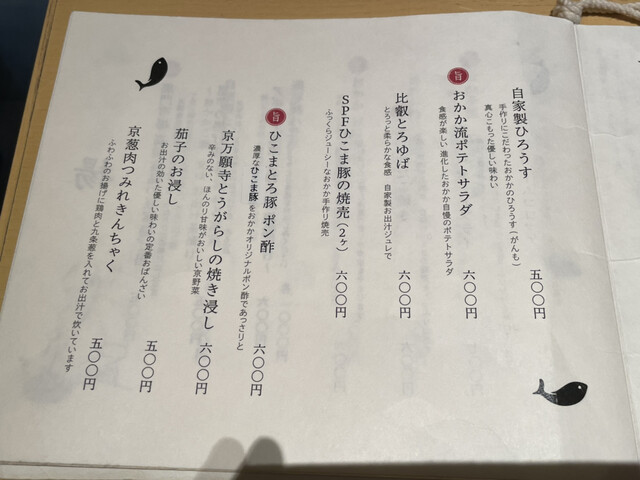 自家製ひろうす
手作りにこだわったおかかのひろうす(がんも)
真心こもった優しい味わい
五〇〇円
旨
おかか流ポテトサラダ
食感が楽しい 進化したおかか自慢のポテトサラダ
六〇〇円
比叡とろゆば
とろっと柔らかな食感 自家製お出汁ジュレで
六〇〇円
SPFひこま豚の焼売(2ヶ)
ふっくらジューシーなおかか手作り焼売
六〇〇円
旨
ひこまとろ豚 ポン酢
濃厚なひこま豚をおかかオリジナルポン酢であっさりと
六〇〇円
京万願寺とうがらしの焼き浸し
辛みのない、ほんのり甘味がおいしい京野菜
六〇〇円
茄子のお浸し
お出汁の効いた優しい味わいの定番おばんざい
五〇〇円
京葱肉つみれきんちゃく
ふわふわのお揚げに鶏肉と九条葱を入れてお出汁で炊いています
五〇〇円